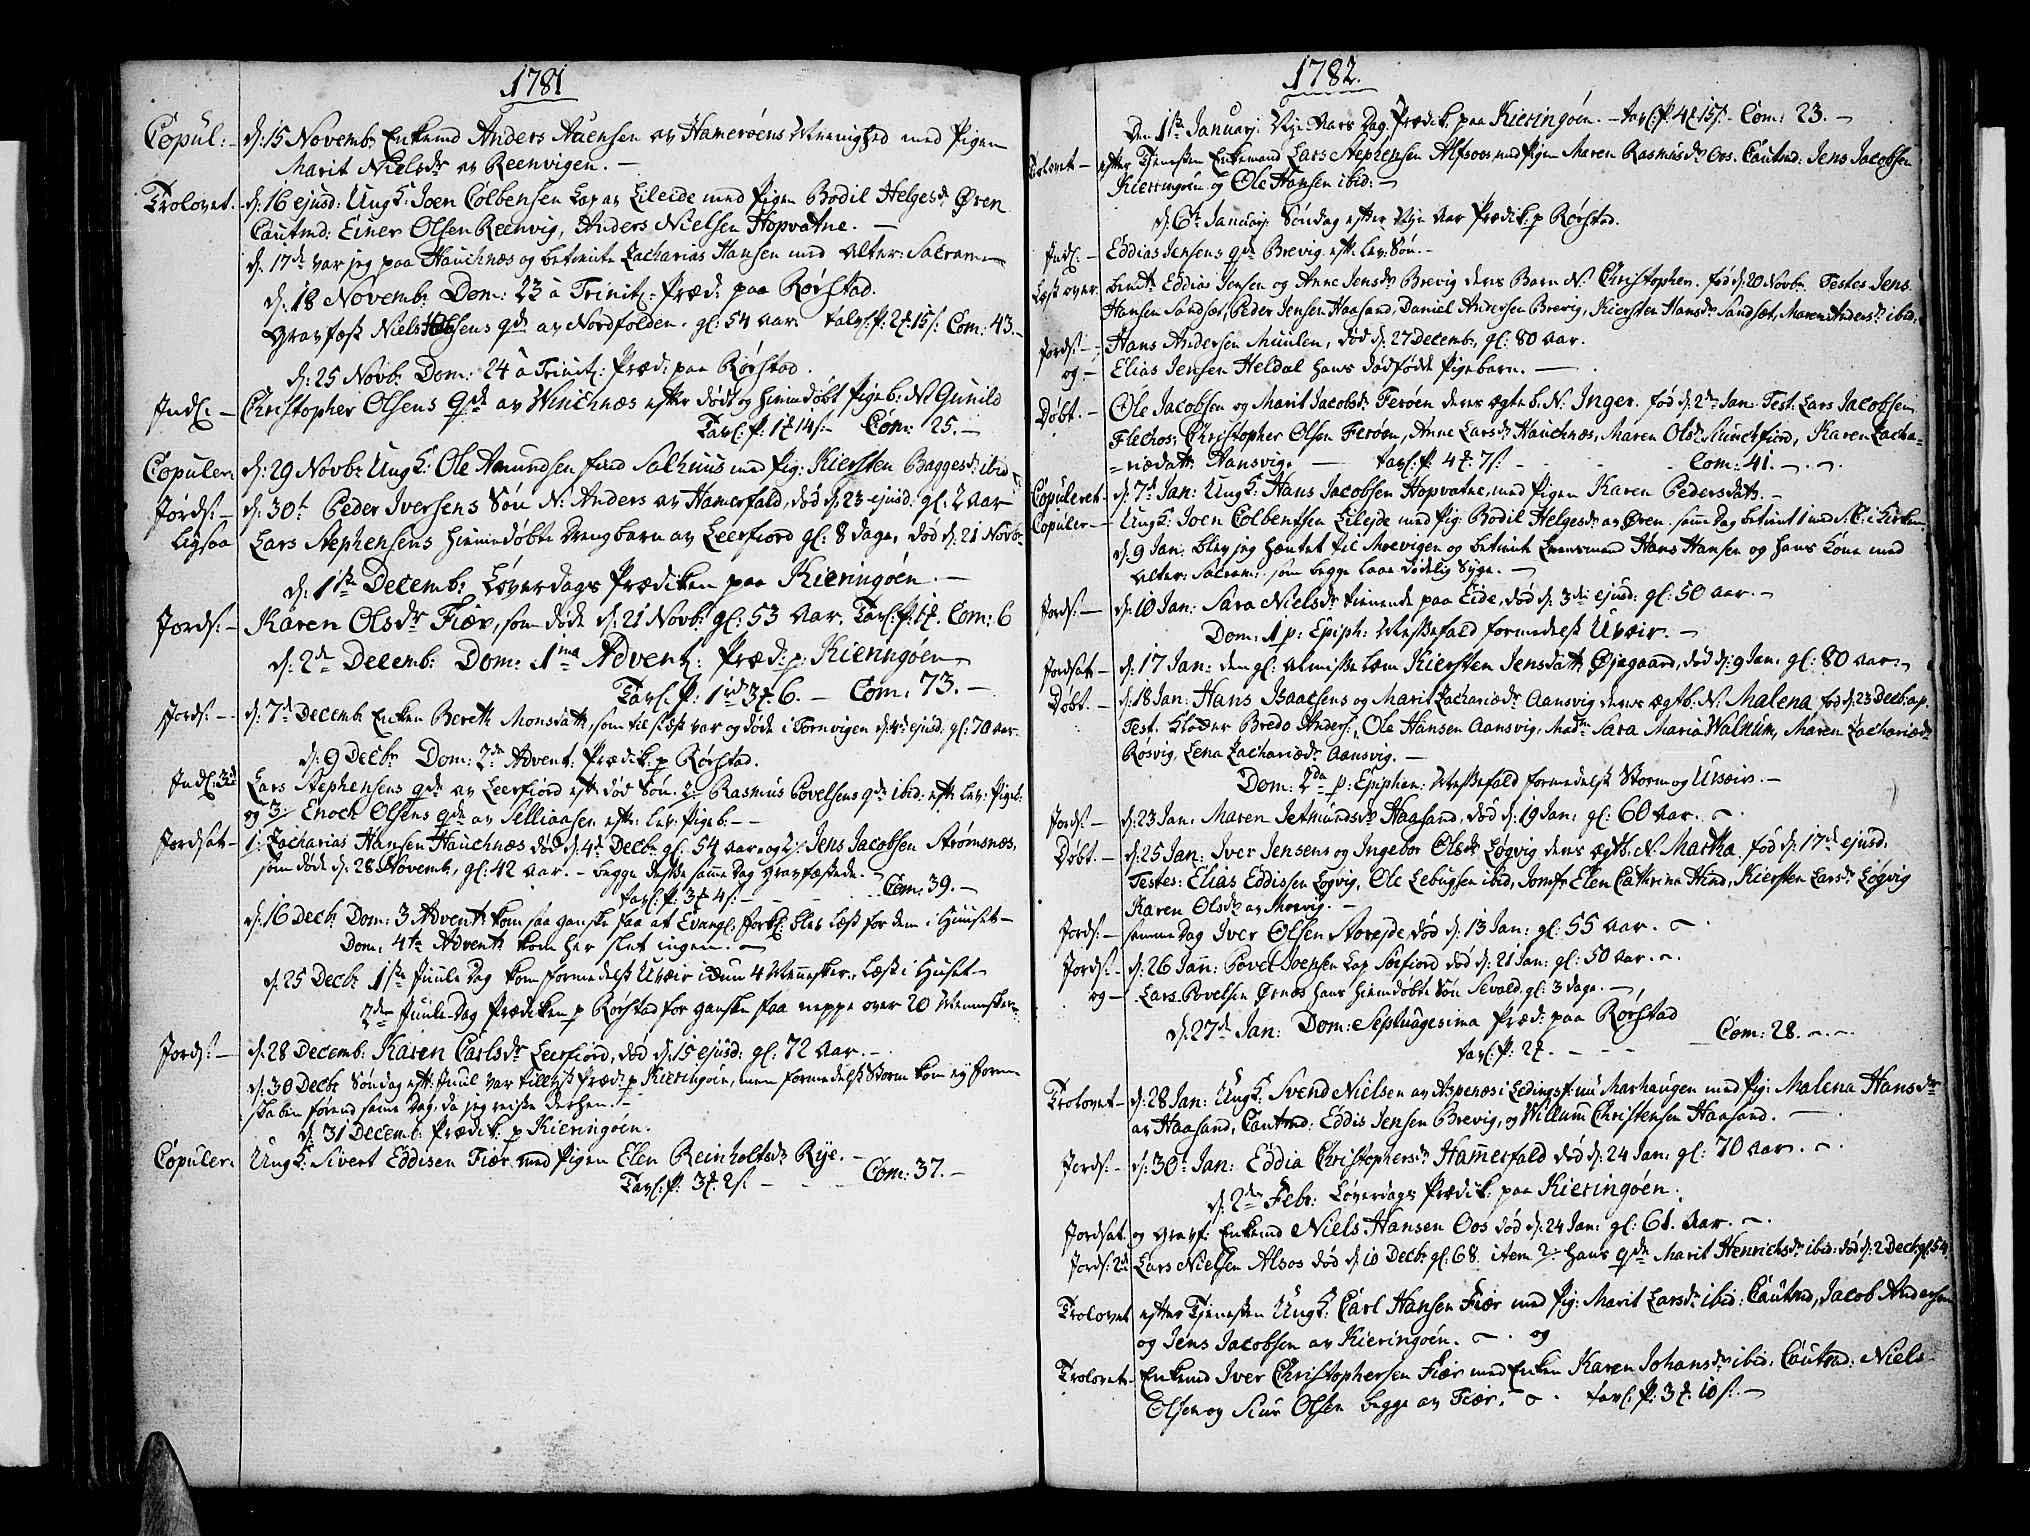 1781
Copul: d: 15 Novemb: Enkemd Anders Auensen av Hamerøens Menighed med Pigen
Marit Nielsdr av Reenvigen. —
Trolovet. d: 16 ejusd: Ungk: Joen Colbensen Lap av Lileide med Pigen Bodil Helgesdr Øren
Cautmd: Einer Olsen Reenvig, Anders Nielsen Hopvatne. —
d: 17de var jeg paa Hauchnæs og betiente Zacharias Hansen med Alter: Sacram—
d: 18 Novemb: Dom: 23 à Trinit: Præd: paa Rørstad.
Gravfæst Niels Olsens qde av Nordfolden. gl: 54 Aar. Tavl: P: 2 15 s: Com: 43.—
d: 25 Novb: Dom: 24 à Trinit: Præd: paa Rørstad.
Indl: — Christopher Olsens Qde av Winchnæs efter dødt og hiemdøbt Pigeb: N: Gunild
Tavl: P: 1 14 s:— Com: 25.—
Copuler: d: 29 Novbr Ungk: Ole Amundsen Salhuus med Pig: Kiersten Baggesdr ibid:
Jords: — d: 30t Peder Iversens Søn N: Anders av Hamerfald, død d: 23 ejusd: gl: 2 Aar
Ligsaa Lars Stephensens hiemedøbte Drengbarn av Leerfiord gl: 8 Dage, død d: 21 Novbr
d: 1ste Decemb: Løverdags Prædiken paa Kieringøen. —
Jords: — Karen Olsdr Fiær, som døde d: 21 Novb: gl: 53 Aar. Tavl: P: 1 Com: 6
d: 2de Decemb: Dom: 1ma Advent: Præd: p: Kieringøen
Tavl: P: 1rd 3 6. — Com: 73. —
Jords: — d: 7de Decemb: Enken Bereth Monsdatt, som til sidst var og døde i Tornvigen d: 4de ejusd: gl: 70 Aar.
d: 9 Decbr Dom: 2de Advent: Prædik p Rørstad.
Indl: 3de Lars Stephensens qde av Leerfiord eft: død Søn: 2: Rasmus Povelsens qde ibid: eft: lev: Pigeb:
og 3: Enoch Olsens qde av Selliaasen eft: lev: Pigeb: —
Jordsat— 1: Zacharias Hansen Hauchnæs død d: 4de Decbr gl: 54 Aar og 2: Jens Jacobsen Strømsnæs,
som døde d: 28 Novemb, gl: 42 Aar. — begge disse samme Dag gravfæstede. —
Tavl: P: 3 4 s: — Com: 39. —
d: 16 Decbr Dom: 3 Advent: kom saa ganske faa at Evangl: forkl: blev læst for dem i Huuset—
Dom: 4te Advent: kom her slet ingen. —
d: 25 Decbr 1ste Juule Dag kom formedelst Uveir icun 4 Mennesker. Læst i Huset—
2den Juule-Dag Prædiken p Rørstad for ganske faa neppe over 20 Mennesker.
Jords: — d: 28 Decemb: Karen Carlsdr Leerfiord, død d: 15 ejusd: gl: 72 Aar. —
d: 30 Decbr Søndag eft: Juul var tillyst Præd: p Kieringøen, men formedelst Storm kom ey
førend same Dag, da jeg reiste derhen. —
d: 31 Decemb: Prædik: p Kieringøen.
Copuler: Ungk: Sivert Eddisen Fiær med Pigen Elen Reinholtsdr Rye. —
Tavl: P: 3 2 s: — Com: 37. —
1782.
Den 1ste Januarj: Nye Aars Dag Prædik: paa Kieringøen. — Tavl: P: 4 15 s. — Com: 23. —
Trolovet — efter Tjenesten Enkemand Lars Stephensen Alfsoos med Pigen Maren Rasmusdr Oos. Cautmd: Jens Jacobsen
Kieringøen og Ole Hansen ibid: —
d: 6te Januarj: Søndag efter Nye Aar Prædik: p Rørstad.
Indl: — Eddias Jensens qde Brevig eft: lev: Søn. —
Læst over bemdte Eddias Jensen og Anne Jensdr Brevig deres Barn N: Christopher. fød d: 20 Novbr. Testes Jens
Hansen Sandsæt, Peder Jensen Haasand, Daniel Andersen Brevig, Kiersten Hansdr Sandsæt, Maren Andersdr ibid:
Jords: — Hans Andersen Muulen, død d: 27 Decemb: gl: 80 Aar.
og — Elias Jensen Heldal hans dødfødde Pigebarn. —
Døbt. — Ole Jacobsen og Marit Jacobsdr Ferøen deres ægte b: N: Inger. fød d: 2de Jan: Test: Lars Jacobsen
Flechos, Christopher Olsen Ferøen, Anne Larsdr Hauchnæs, Maren Olsdr Munchfiord, Karen Zacha-
riædatt: Aansvig. — Tavl: P: 4 7 s: — Com: 41. —
Copuleret — d: 7de Jan: Ungk: Hans Jacobsen Hopvatne, med Pigen Karen Pedersdatt. —
Copuler — Ungk: Joen Colbentsen Lilejde med Pig: Bodil Helgesdr av Øren. same Dag betient 1 med S: C: i Kirken
d: 9 Jan: blev jeg hentet til Mørvigen og betiente Lensmand Hans Hansen og hans Kone med
Alter: Sacram: som begge laae dødelig Syge. —
Jords: — d: 10 Jan: Sara Nielsdr tienende paa Eide, død d: 3de ejusd: gl: 50 Aar. —
Dom: 1 p: Epiph: Messefald formedelst Uveir. —
Jordsat — d: 17 Jan: den gl: Almisse Lem Kiersten Jensdatt: Øjegaard, død d: 9 Jan: gl: 80 Aar. —
Døbt. — d: 18 Jan: Hans Isaachsens og Marit Zachariædr Aansvig deres ægtb: N: Malena fød d: 23 Decb: a: p:
Test: Bredo Anders:, Ole Hansen Aansvig, Mad: Sara Maria Walnum, Maren Zachariædr
Røsvig, Lena Zachariædr Aansvig. —
Dom: 2da p: Epiphan: Messefald formedelst Storm og Uveir. —
Jords: — d: 23 Jan: Maren Jetmundsdr Haasand, død d: 19 Jan: gl: 60 Aar. —
Døbt. — d: 25 Jan: Iver Jensens og Ingebor Olsdr Løgvig deres ægtb: N: Martha fød d: 17de ejusd:
Testes: Elias Eddissen Løgvig, Ole Lebugsen ibid, Jomfr Elen Cathrina Hind, Kiersten Larsdr Løgvig
Karen Olsdr av Mørvig. —
Jords: — samme Dag Iver Olsen Storejde død d: 13 Jan: gl: 55 Aar. —
Jords: — d: 26 Jan: Povel Ivensen Lap Sørfiord død d: 21 Jan: gl: 50 Aar. —
og — Lars Povelsen Ørnæs hans hiemdøbte Søn Sevald gl: 3 Dage. —
d: 27de Jan: Dom: Septuagesima Præd: paa Rørstad
Tavl: P: 2 — Com: 28. —
Trolovet — d: 28 Jan: Ungk: Svend Nielsen av Aspenæs i Ledingsf: nu Marhaugen med Pig: Malena Hansdr
av Haasand, Cautmd: Eddis Jensen Brevig, og Willum Christensen Haasand. —
Jords: — d: 30t Jan: Eddia Christophersdr Hamerfald død d: 24 Jan: gl: 70 Aar. —
d: 2den Febr: Løverdags Prædik: paa Kieringøen.
Jordsat og Gravf: Enkemd Niels Hansen Oos død d: 24 Jan: gl: 61. Aar. —
Jords: 2de Lars Nielsen Alsos død d: 10 Decbr gl: 68. item 2: hans qde Marit Henrichsdr ibid: død d: 2 Decbr gl: 54
Trolovet efter Tjenesten Ungk: Carl Hansen Fiær med Pig: Marit Larsdr ibid: Cautmd, Jacob Andersen
og Jens Jacobsen av Kieringøen. — og
Trolovet — Enkemd Iver Christophersen Fiær med Enken Karen Johansdr ibid: Cautmd: Niels
Olsen og Siur Olsen begge av Fiær. — Tavl: P: 3 10 s: —